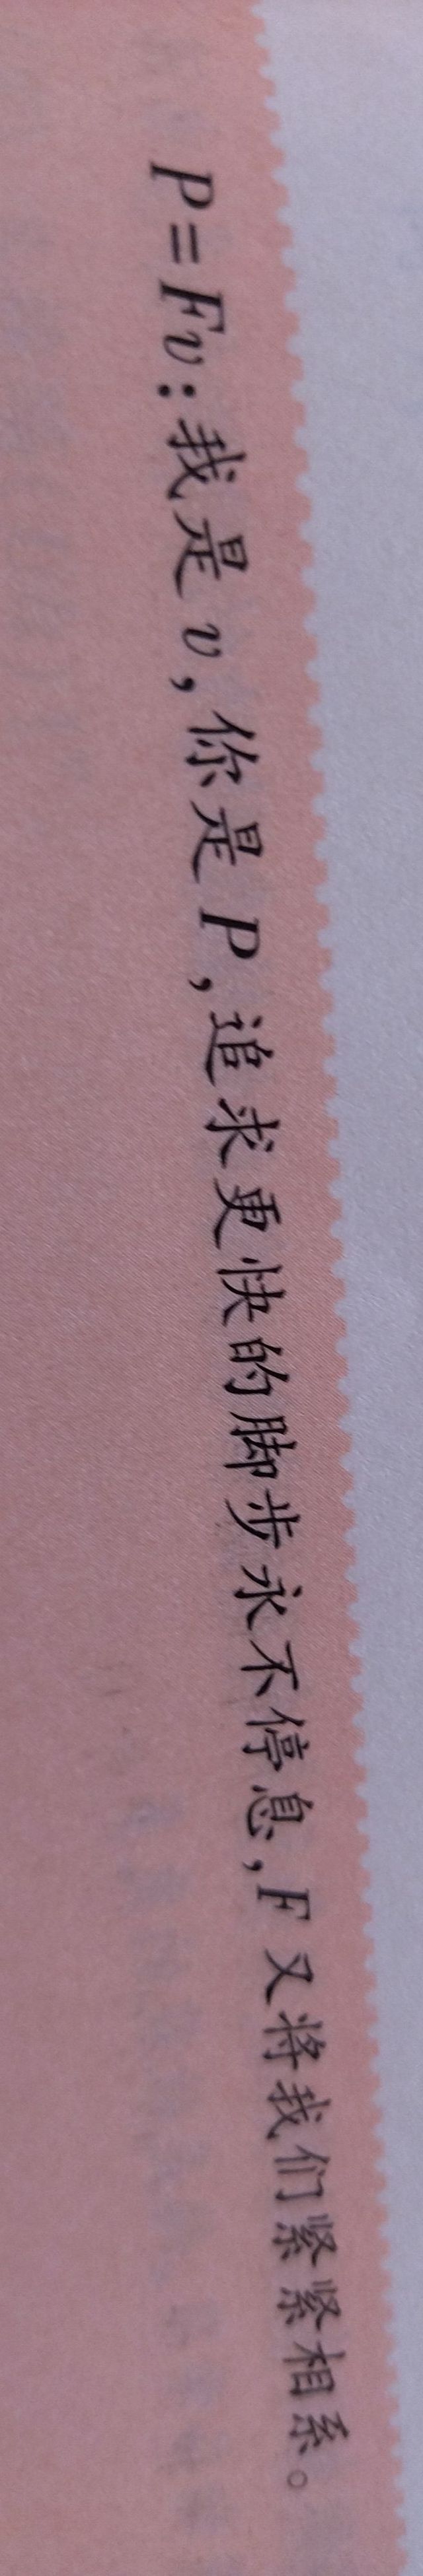 P=Fv:我是v,你是P,追求更快的脚步永不停息,F又将我们紧紧相系。